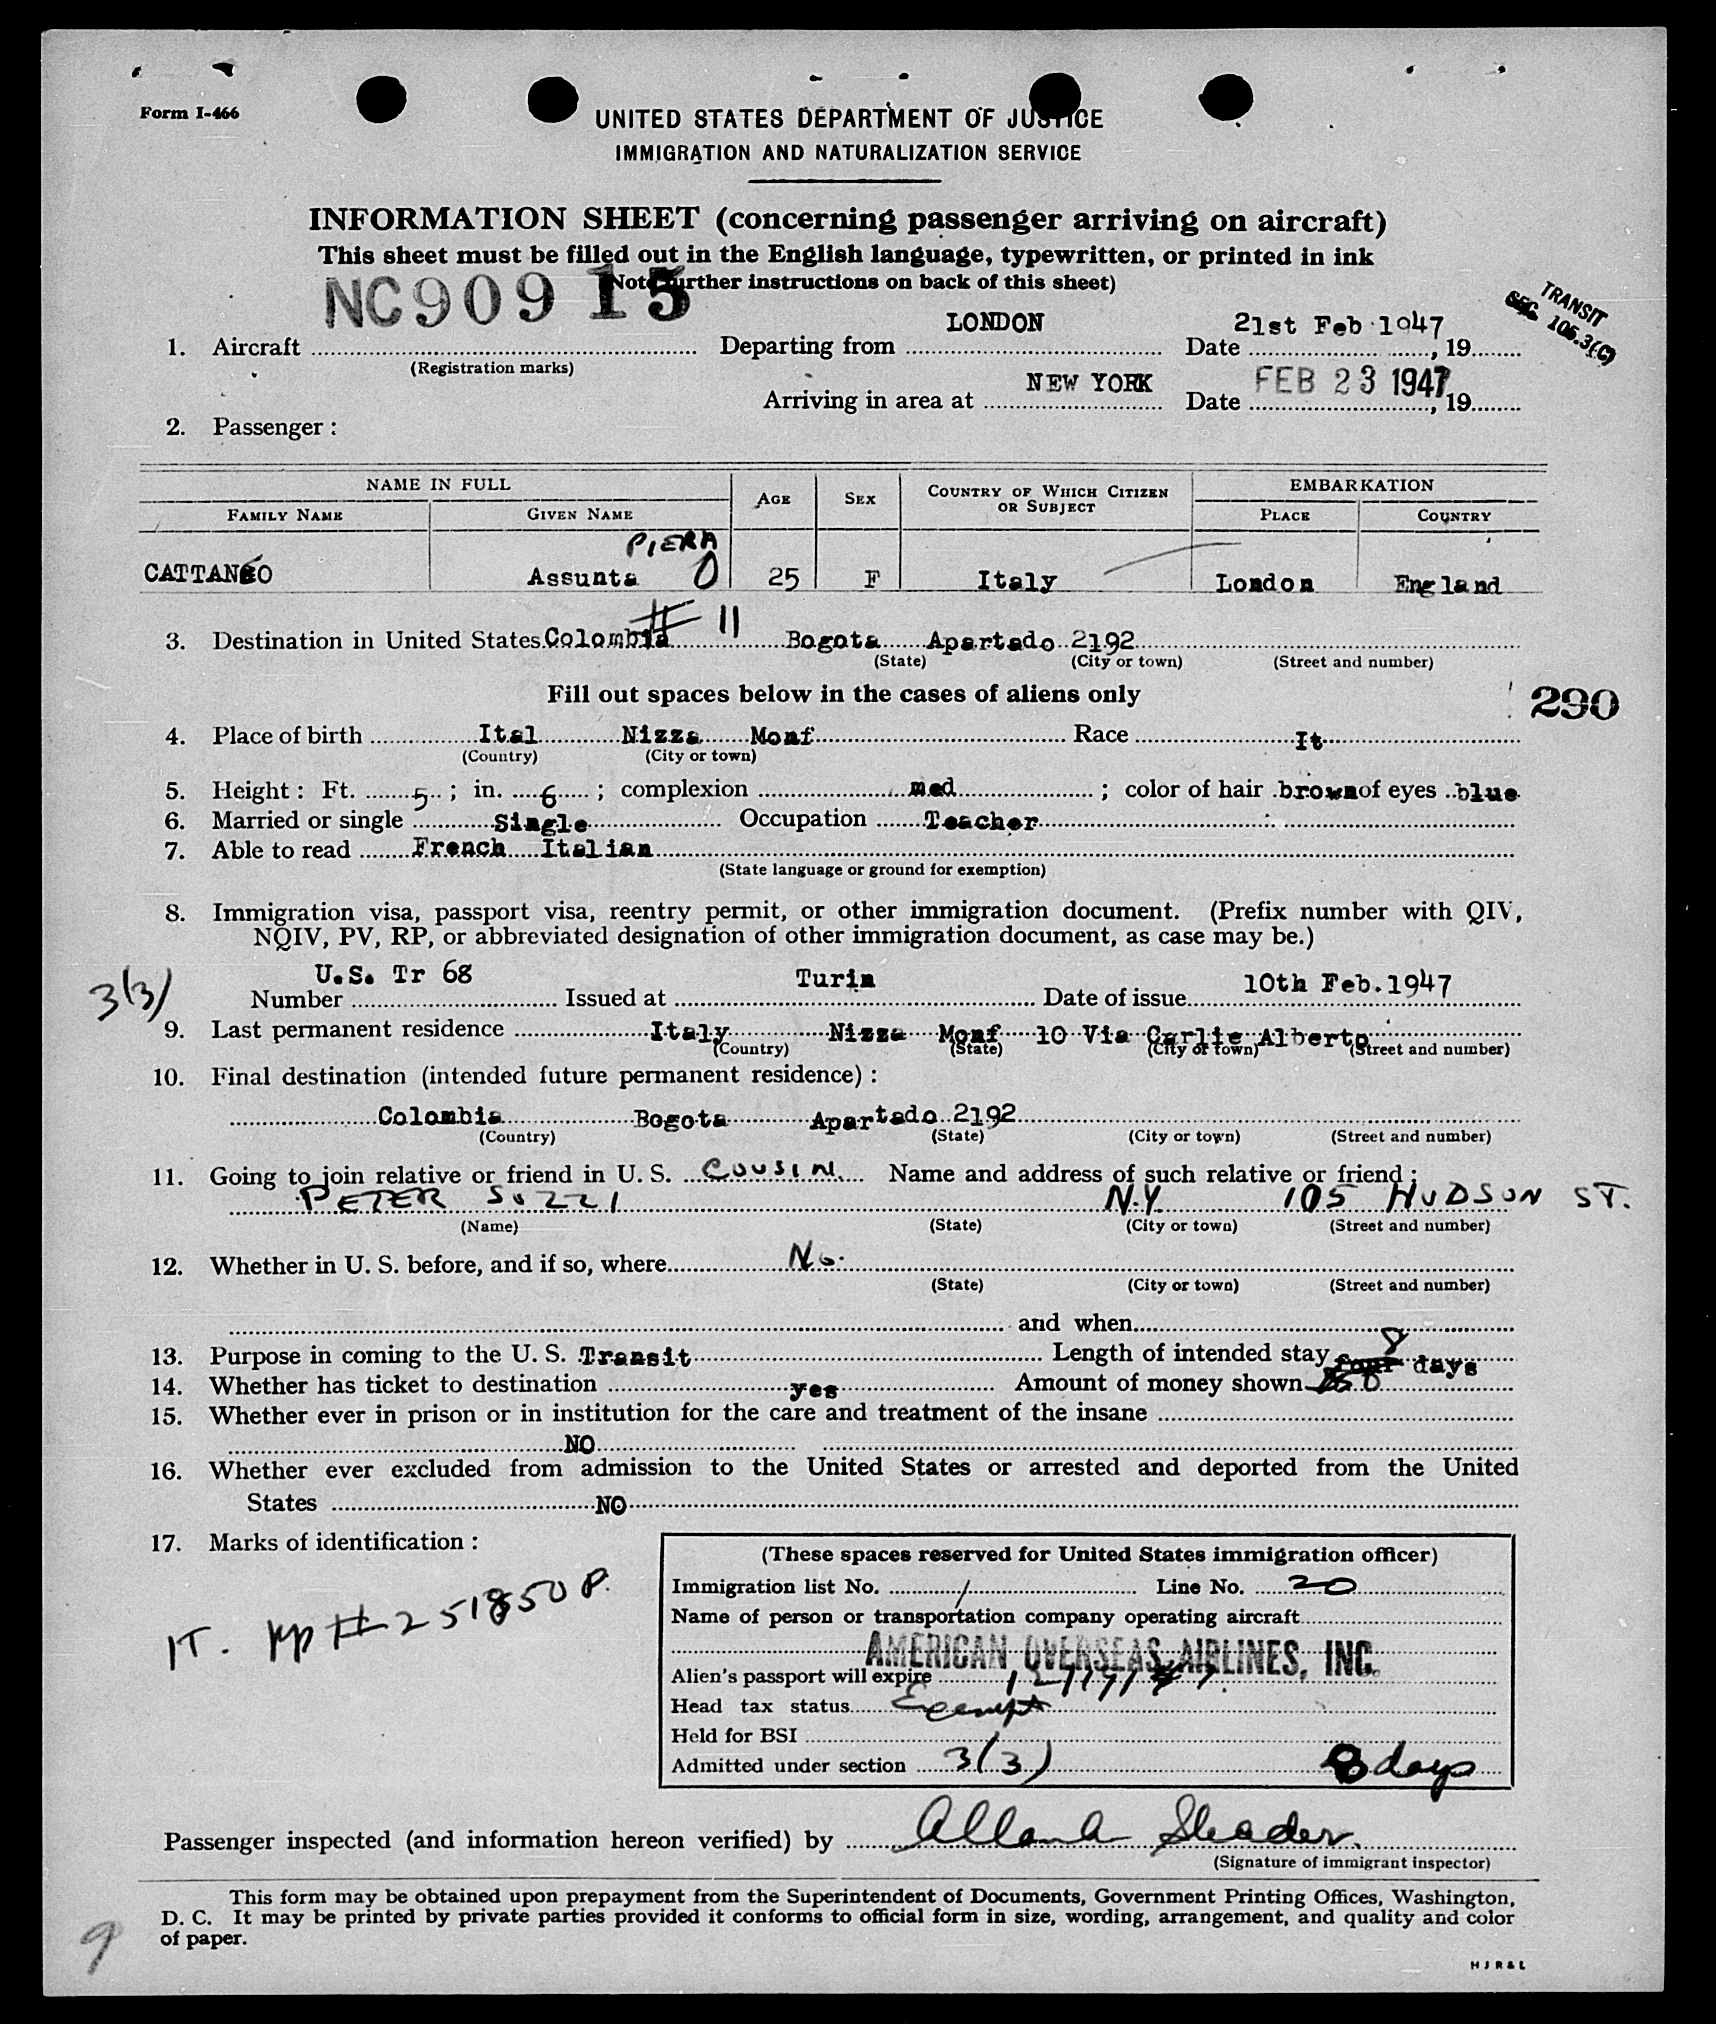 Form I-466
UNITED STATES DEPARTMENT OF JUSTICE
IMMIGRATION AND NATURALIZATION SERVICE
INFORMATION SHEET (concerning passenger arriving on aircraft)
This sheet must be filled out in the English language, typewritten, or printed in ink
(Note further instructions on back of this sheet)
NC90915
TRANSIT
SEC. 105.3(C)
1. Aircraft Departing from LONDON Date 21st Feb 1947, 19
(Registration marks)
Arriving in area at NEW YORK Date FEB 23 1947, 19
2. Passenger :
NAME IN FULL AGE SEX COUNTRY OF WHICH CITIZEN OR SUBJECT EMBARKATION
FAMILY NAME GIVEN NAME PLACE COUNTRY
PIERA
CATTANEO Assunta 25 F Italy London England
# 11
3. Destination in United States Colombia Bogota Apartado 2192
(State) (City or town) (Street and number)
Fill out spaces below in the cases of aliens only
290
4. Place of birth Ital Nizza Monf Race It
(Country) (City or town)
5. Height : Ft. 5 ; in. 6 ; complexion med ; color of hair brown of eyes blue
6. Married or single Single Occupation Teacher
7. Able to read French Italian
(State language or ground for exemption)
8. Immigration visa, passport visa, reentry permit, or other immigration document. (Prefix number with QIV,
NQIV, PV, RP, or abbreviated designation of other immigration document, as case may be.)
3(3)
Number U.S. Tr 68 Issued at Turin Date of issue 10th Feb. 1947
9. Last permanent residence Italy Nizza Monf 10 Via Carlie Alberto
(Country) (State) (City or town) (Street and number)
10. Final destination (intended future permanent residence) :
Colombia Bogota Apartado 2192
(Country) (State) (City or town) (Street and number)
11. Going to join relative or friend in U. S. COUSIN Name and address of such relative or friend :
PETER SUZZI N.Y. 105 HUDSON ST.
(Name) (State) (City or town) (Street and number)
12. Whether in U. S. before, and if so, where No.
(State) (City or town) (Street and number)
and when
13. Purpose in coming to the U. S. Transit Length of intended stay four 8 days
14. Whether has ticket to destination yes Amount of money shown
15. Whether ever in prison or in institution for the care and treatment of the insane
NO
16. Whether ever excluded from admission to the United States or arrested and deported from the United
States NO
17. Marks of identification :
IT. pp # 251850 P.
(These spaces reserved for United States immigration officer)
Immigration list No. 1 Line No. 20
Name of person or transportation company operating aircraft
AMERICAN OVERSEAS AIRLINES, INC.
Alien's passport will expire
Head tax status Exempt
Held for BSI
Admitted under section 3(3) 8 days
Passenger inspected (and information hereon verified) by
(Signature of immigrant inspector)
This form may be obtained upon prepayment from the Superintendent of Documents, Government Printing Offices, Washington,
D. C. It may be printed by private parties provided it conforms to official form in size, wording, arrangement, and quality and color
of paper.
9
HJR&L